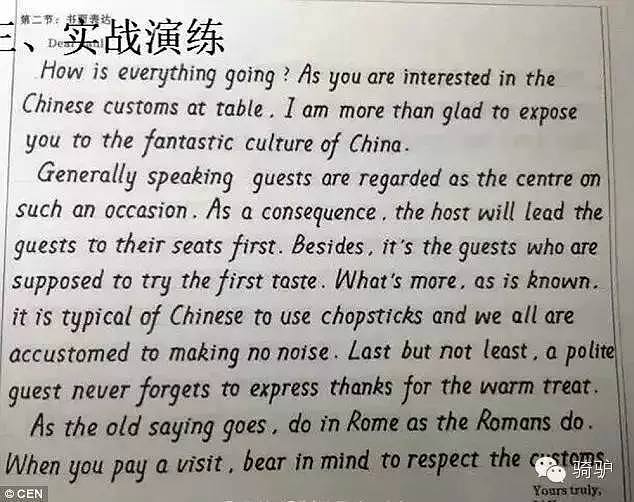 第二节：书面表达
三、实战演练
How is everything going? As you are interested in the
Chinese customs at table, I am more than glad to expose
you to the fantastic culture of China.
Generally speaking guests are regarded as the centre on
such an occasion. As a consequence, the host will lead the
guests to their seats first. Besides, it's the guests who are
supposed to try the first taste. What's more, as is known,
it is typical of Chinese to use chopsticks and we all are
accustomed to making no noise. Last but not least, a polite
guest never forgets to express thanks for the warm treat.
As the old saying goes, do in Rome as the Romans do.
When you pay a visit, bear in mind to respect the customs.
骑驴
Yours truly,
©CEN